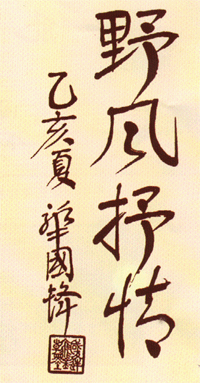 野风抒情
乙亥夏 華國锋